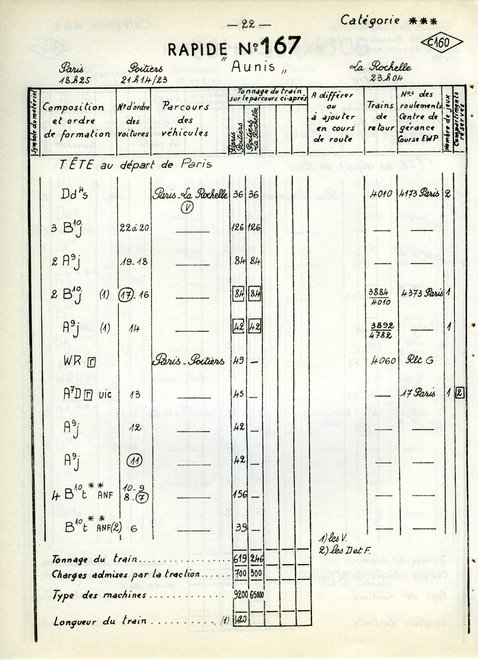 — 22 —
Catégorie ***
RAPIDE Nº 167
C160
"Aunis„
Paris Poitiers La Rochelle
18h25 21h14/23 23h04
Symbole du matériel
Composition et ordre de formation
Nos d'ordre des voitures
Parcours des véhicules
Tonnage du train sur le parcours ci-après
Paris Poitiers
Poitiers La Rochelle
A différer ou à ajouter en cours de route
Trains de retour
Nos des roulements Centre de gérance Course EWP
Nombre de jeux
Compartiments réservés
TÊTE au départ de Paris
Dd⁴s Paris-La Rochelle (V) 36 36 4010 4173 Paris 2
3 B¹⁰j 22 à 20 —— 126 126 —— ——
2 A⁹j 19-18 —— 84 84 —— ——
2 B¹⁰j (1) 17-16 —— 84 84 3884/4010 4373 Paris 1
A⁹j (1) 14 —— 42 42 3892/4782 —— 1
WR r Paris-Poitiers 49 — 4060 Rlt G
A⁷D r vic 13 —— 45 — —— 17 Paris 1 2
A⁹j 12 —— 42 — —— ——
A⁹j 11 —— 42 — —— ——
4 B¹⁰t ** ANF 10-9 8-7 —— 156 — ——
B¹⁰t ** ANF(2) 6 —— 39 — —— ——
1) les V.
2) les D et F.
Tonnage du train 619 246
Charges admises par la traction 700 300
Type des machines 9200 65000
Longueur du train (1) 420